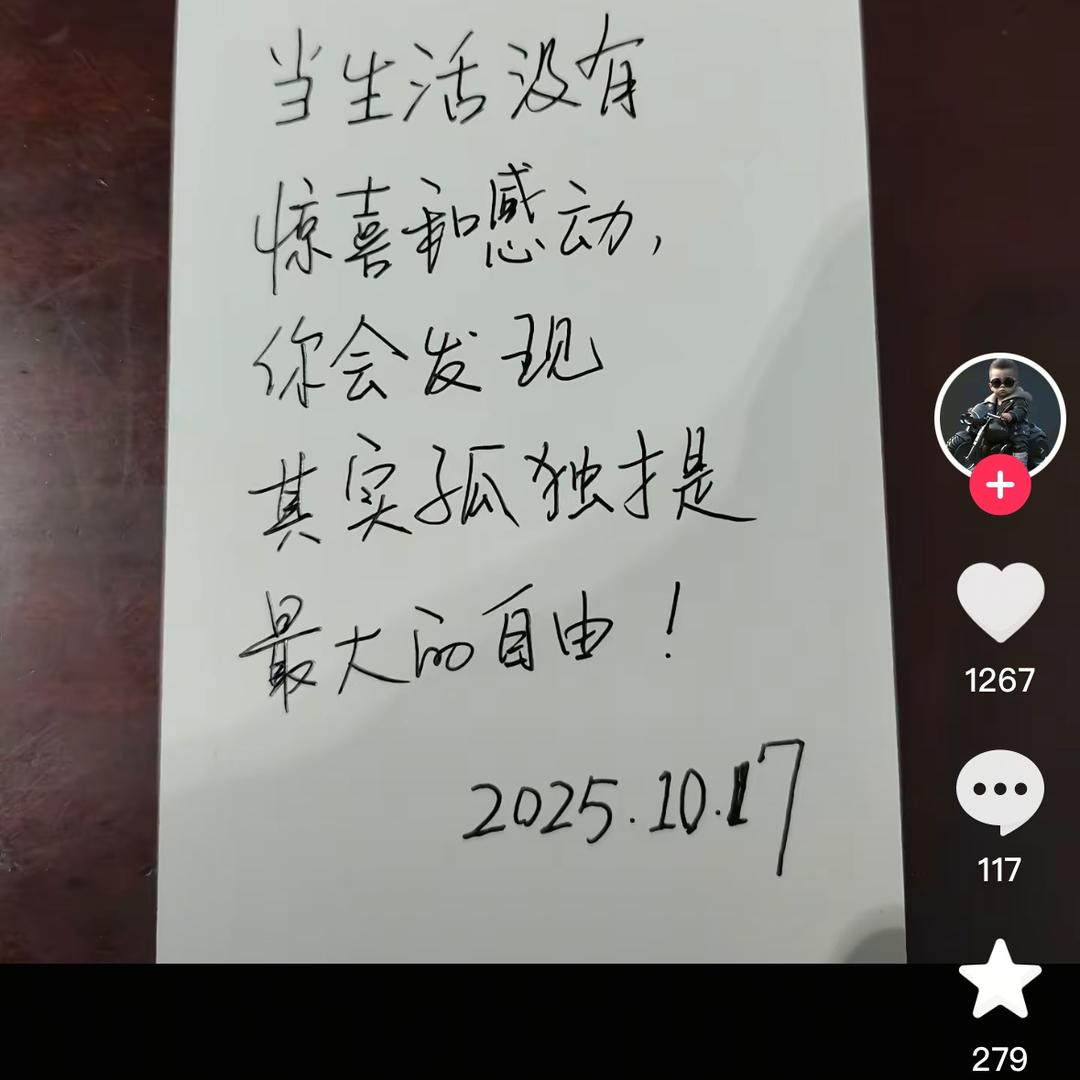 当生活没有
惊喜和感动，
你会发现
其实孤独才是
最大的自由！
2025.10.17
1267
117
279